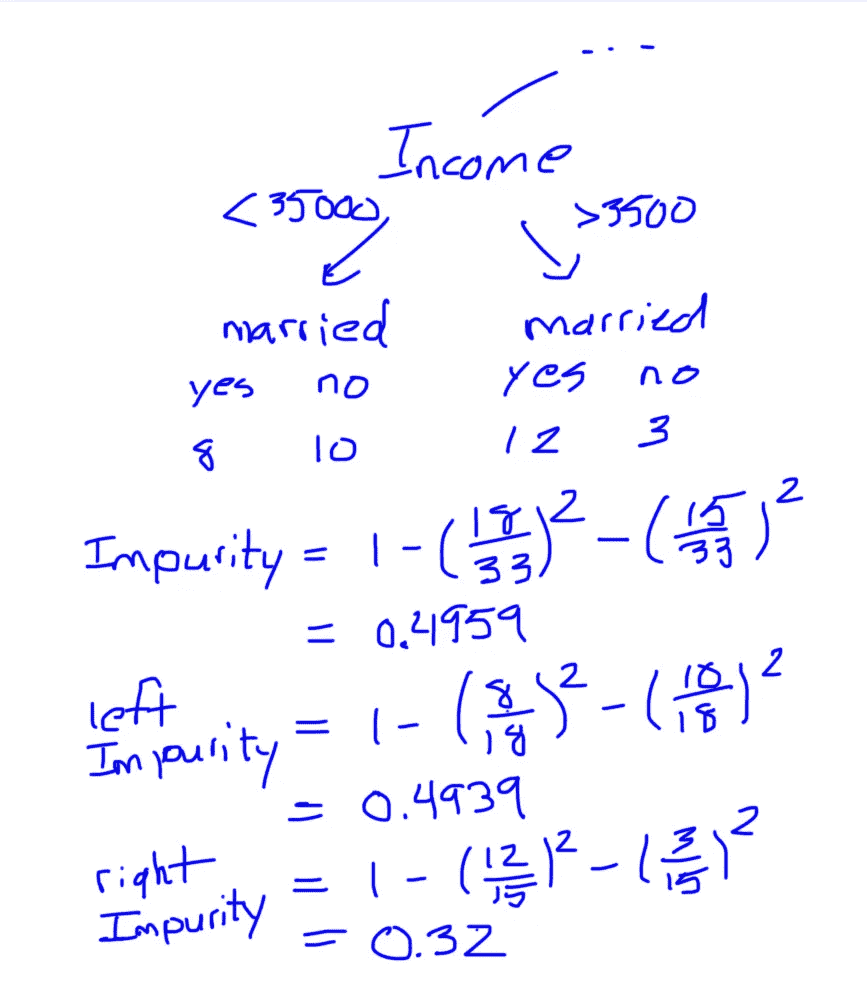 ...
Income
<35000 >3500
married married
yes no yes no
8 10 12 3
Impurity = 1 - (18/33)² - (15/33)²
= 0.4959
left Impurity = 1 - (8/18)² - (10/18)²
= 0.4939
right Impurity = 1 - (12/15)² - (3/15)²
= 0.32